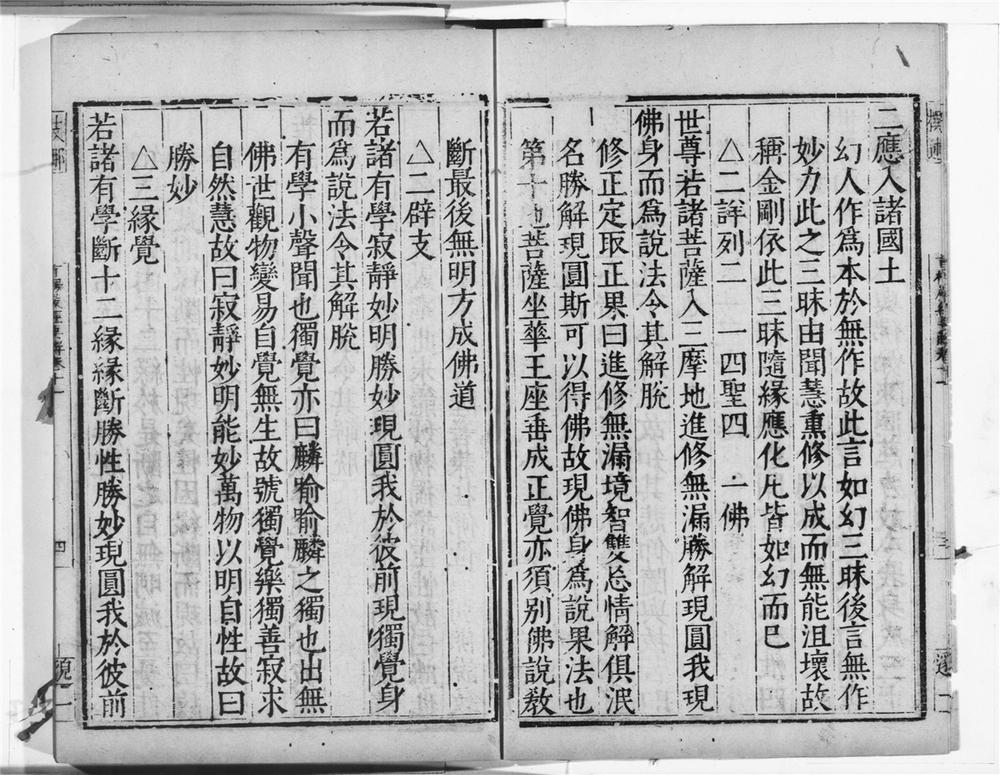 二應入諸國土
幻人作爲本於無作故此言如幻三昧後言無作
妙力此之三昧由聞慧熏修以成而無能沮壞故
稱金剛依此三昧隨緣應化凡皆如幻而巳
△二詳列二　一四聖四　一佛
世尊若諸菩薩入三摩地進修無漏勝解現圓我現
佛身而爲說法令其解脫
修正定取正果曰進修無漏境智雙忘情解俱泯
名勝解現圓斯可以得佛故現佛身爲說果法也
第十地菩薩坐華王座垂成正覺亦須別佛說教
斷最後無明方成佛道
△二辟支
若諸有學寂靜妙明勝妙現圓我於彼前現獨覺身
而爲說法令其解脫
有學小聲聞也獨覺亦曰麟喻喻麟之獨也出無
佛世觀物變易自覺無生故號獨覺樂獨善寂求
自然慧故曰寂靜妙明能妙萬物以明自性故曰
勝妙
△三緣覺
若諸有學斷十二緣緣斷勝性勝妙現圓我於彼前